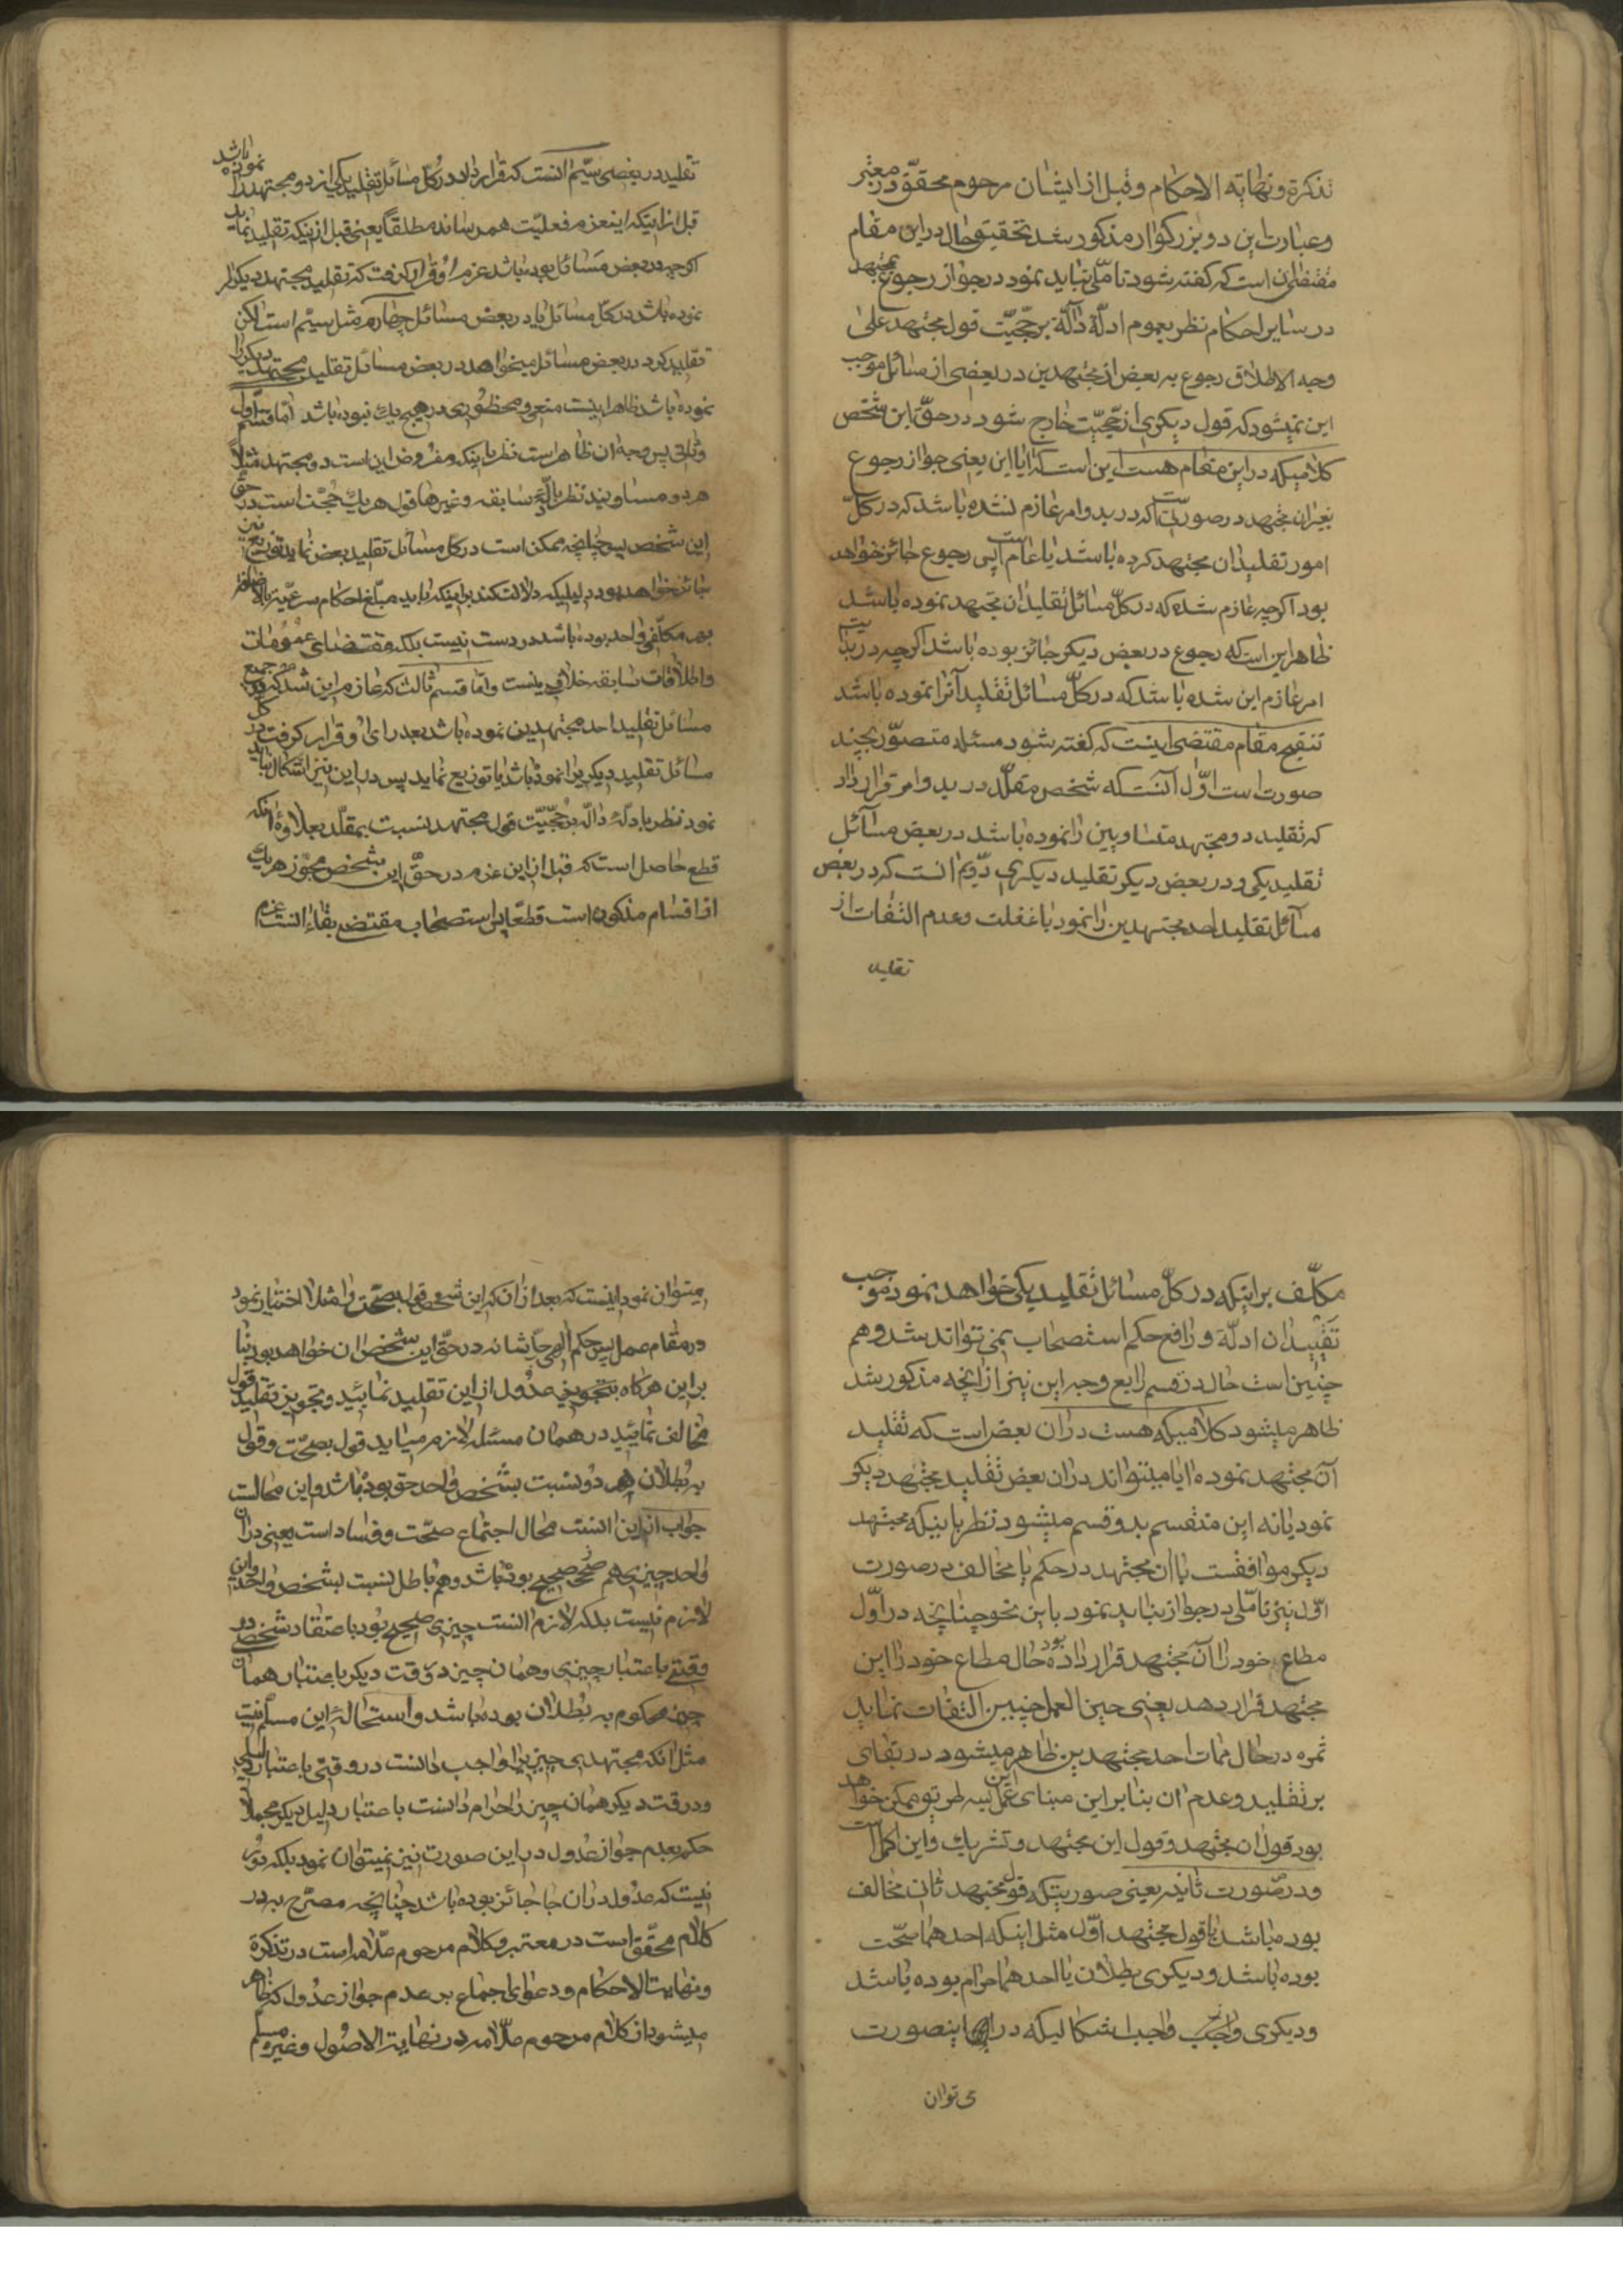 تذکرة و نهایة الاحکام و قبل از ایشان مرحوم محقق در معتبر
و عبارت این دو بزرکوار مذکور شد تحقیق حال در این مقام
مقتضی آن است که کفته شود تاملی نباید نمود در جواز رجوع بمجتهد
در سایر احکام نظر بعموم ادلّۀ دالّة بر حجّیّت قول مجتهد علی
وجه الاطلاق رجوع به بعض از مجتهدین در بعضی از مسائل موجب
این نمیشود که قول دیکری از حجّیّت خارج شود در حقّ این شخص
کلامیکه در این مقام هست این است که آیا این یعنی جواز رجوع
بغیر آن مجتهد در صورتی است که در بدو امر عازم نشده باشد که در کلّ
امور تقلید آن مجتهد کرده باشد یا عام است پس رجوع جائز خواهد
بود اکرچه عازم شده که در کلّ مسائل تقلید آن مجتهد نموده باشد
ظاهر این است که رجوع در بعض دیکر جائز بوده باشد اکرچه در بدایت
امر عازم این شده باشد که در کلّ مسائل تقلید آنرا نموده باشد
تنقیح مقام مقتضی اینست که کفته شود مسئله متصوّر بچند
صورت است اوّل آنست که شخص مقلّد در بدو امر قرار داد
که تقلید دو مجتهد متساویین را نموده باشد در بعض مسائل
تقلید یکی و در بعض دیکر تقلید دیکری دوّیم انست که در بعض
مسائل تقلید احد مجتهدین را نمود با غفلت و عدم التفات از
تقلید
تقلید در بعضی سیّم انست که قرار داد در کلّ مسائل تقلید یکی از دو مجتهد را نموده باشد
قبل از اینکه اینعزم فعلیّت همرساند مطلقاً یعنی قبل از اینکه تقلید نماید
اکرچه در بعض مسائل بوده باشد عزم او قرار کرفت که تقلید مجتهد دیکر را
نموده باشد در کلّ مسائل یا در بعض مسائل چهارم مثل سیّم است لکن
تقلید کرد در بعض مسائل میخواهد در بعض مسائل تقلید مجتهد دیکر را
نموده باشد ظاهر اینست منعی و محظوری در هیچ یک نبوده باشد اما قسم اوّل
و ثانی پس وجه آن ظاهر است نظر باینکه مفروض این است دو مجتهد مثلاً
هر دو مساویند نظر بادلّۀ سابقه و غیرها قول هر یک حجّت است در حقّ
این شخص پس چنانچه ممکن است در کل مسائل تقلید بعض نماید توزیع نیز
جائز خواهد بود دلیلیکه دلالت کند بر اینکه باید مبلّغ احکام شرعیّه بالاضافه
بهر مکلّفی واحد بوده باشد در دست نیست بلکه مقتضای عمومات
و اطلاقات سابقه خلاف اینست و امّا قسم ثالث که عازم این شد که در جمیع
مسائل تقلید احد مجتهدین نموده باشد بعد رای او قرار کرفت در کل
مسائل تقلید دیکریرا نموده باشد یا توزیع نماید پس در این نیز اشکال نباید
نمود نظر بادلّۀ دالّه بر حجّیّت قول مجتهد نسبت بمقلّد بعلاوۀ انکه
قطع حاصل است که قبل از این عزم در حقّ این شخص مجوّز هر یک
از اقسام مذکوره است قطعاً پس استصحاب مقتضی بقاء انست عزم
مکلّف بر اینکه در کلّ مسائل تقلید یکی خواهد نمود موجب
تقیید ان ادلّة و رافع حکم استصحاب نمی تواند شد و هم
چنین است حال در قسم رابع وجه این نیز از انچه مذکور شد
ظاهر میشود کلامیکه هست در ان بعض است که تقلید
آن مجتهد نموده ایا میتواند در ان بعض تقلید مجتهد دیکر
نمود یا نه این منقسم بدو قسم میشود نظر باینکه مجتهد
دیکر موافقست با ان مجتهد در حکم یا مخالف در صورت
اوّل نیز تاملی در جواز نباید نمود باین نحو چنانچه در اوّل
مطاع خود را آن مجتهد قرار داده بود حال مطاع خود را این
مجتهد قرار دهد یعنی حین العمل چنین التفات نماید
ثمره در حال ممات احد مجتهدین ظاهر میشود در بقای
بر تقلید و عدم ان بنابر این مبنای عمل بسه طریق ممکن خواهد
بود قول ان مجتهد و قول این مجتهد و تشریک و این اکمل است
و در صورت ثانیه یعنی صورتیکه قول مجتهد ثانی مخالف
بوده باشد با قول مجتهد اوّل مثل اینکه احدهما صحّت
بوده باشد و دیکری بطلان یا احدهما حرام بوده باشد
و دیکری واجب اشکالیکه در اینصورت
می توان
میتوان نمود اینست که بعد از ان که این شخص قول بصحّت را مثلا اختیار نمود
در مقام عمل پس حکم الهی جلّ شانه در حقّ این شخص ان خواهد بود بنا
بر این هرکاه تجویز عدول از این تقلید نمائید و تجویز تقلید قول
مخالف نمائید در همان مسئله لازم میاید قول بصحّت و قول
به بطلان هر دو نسبت بشخص واحد حق بوده باشد و این محالست
جواب از این انست محال اجتماع صحّت و فساد است یعنی در ان
واحد چیزی هم صحیح بوده باشد و هم باطل نسبت بشخص واحد و این
لازم نیست بلکه لازم انست چیزی صحیح بود باعتقاد شخص در
وقتی باعتبار چیزی و همان چیز در وقت دیکر باعتبار همان
چیز محکوم به بطلان بوده باشد و استحالۀ این مسلّم نیست
مثل انکه مجتهدی چیزیرا واجب دانست در وقتی باعتبار دلیلی
و در وقت دیکر همان چیز را حرام دانست باعتبار دلیل دیکر مجملاً
حکم بعدم جواز عدول در این صورت نیز نمیتوان نمود بلکه دور
نیست که عدول در ان جا جائز بوده باشد چنانچه مصرّح به در
کلام محقّق است در معتبر و کلام مرحوم علّامه است در تذکرة
و نهایت الاحکام و دعوای اجماع بر عدم جواز عدول که ظاهر
میشود از کلام مرحوم علّامه در نهایة الاصول و غیره مسلم